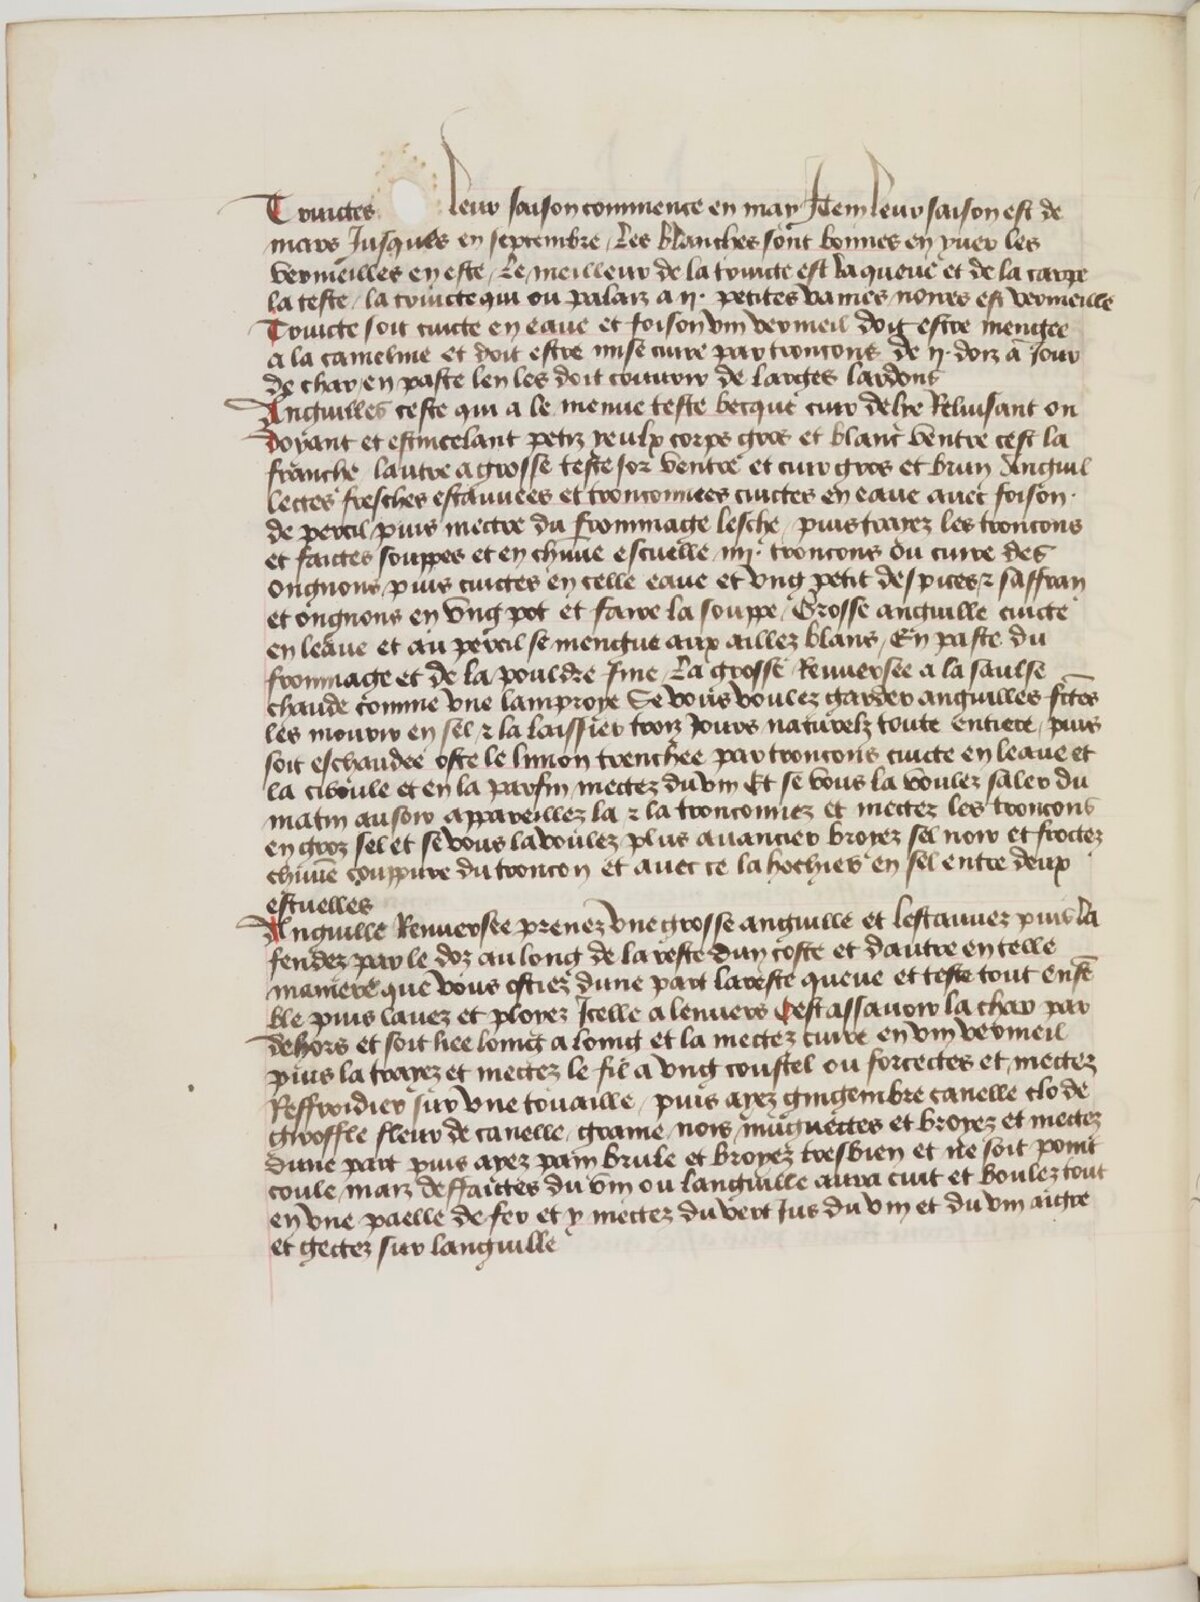 Truictes leur saison commence en may Item leur saison est de
mars Jusques en septembre / Les blanches sont bonnes en yuer les
vermeilles en este / Le meilleur de la truicte est la queue et de la carpe
la teste / la truicte qui ou palaiz a ij. petites vaines noires est vermeille
Truicte soit cuicte en eaue et foison vin vermeil doit estre mengee
a la cameline et doit estre mise cuire par troncons de ij. doiz a Jour
de char / en paste len les doit couurir de larges lardons
Anguilles ceste qui a le menue teste becque cuir delye Reluisant on
doyant et estincelant petiz yeulx corps gros et blanc ventre cest la
franche lautre a grosse teste sor ventre et cuir gros et brun Anguil
lectes fresches estauuees et tronconnees cuictes en eaue auec foison
de percil puis mectre du frommage lesche / puis trayez les troncons
et faictes souppes et en chūne escuelle iiij. troncons ou cuire des
ongnons puis cuictes en celle eaue et vng petit despices ⁊ saffran
et ongnons en vng pot et faire la souppe / Grosse anguille cuicte
en leaue et au percil se mengue aux aillez blans / En paste du
frommage et de la pouldre fine / La grosse Renuersee a la saulse
chaude comme vne lamproye Se vous voulez garder anguilles fctes
les mourir en sel ⁊ la laissier troiz Jours naturelz toute entiere / puis
soit eschaudee oste le limon trenchee par troncons cuicte en leaue et
la ciboule et en la parfin mectez du vin Et se vous la voulez saler du
matin au soir appareillez la ⁊ la tronconnez et mectez les troncons
en groz sel et se vous la voulez plus auancier broyez sel noir et froctez
chūne couppure du troncon et auec ce la hochies en sel entre deux
escuelles
Anguille Renuersee prenez vne grosse anguille et lestauuez puis la
fendez par le doz au long de la reste dun coste et dautre en telle
maniere que vous ostiez dune part lareste queue et teste tout ensē
ble puis lauez et ployez Icelle a lenuers Cest assauoir la char par
dehors et soit liee loing a loing et la mectez cuire en vin vermeil
puis la trayez et mectez le fil a vng coustel ou forcectes et mectez
Reffroidier sur vne touaille / puis ayez gingembre canelle clo de
giroffle fleur de canelle / graine / nois muguectes et broyez et mectez
dune part puis ayez pain brule et broyez tresbien et ne soit point
coule / maiz deffaictes du vin ou languille aura cuit et boulez tout
en vne paelle de fer et y mectez du vert Jus du vin et du vin aigre
et gectez sur languille